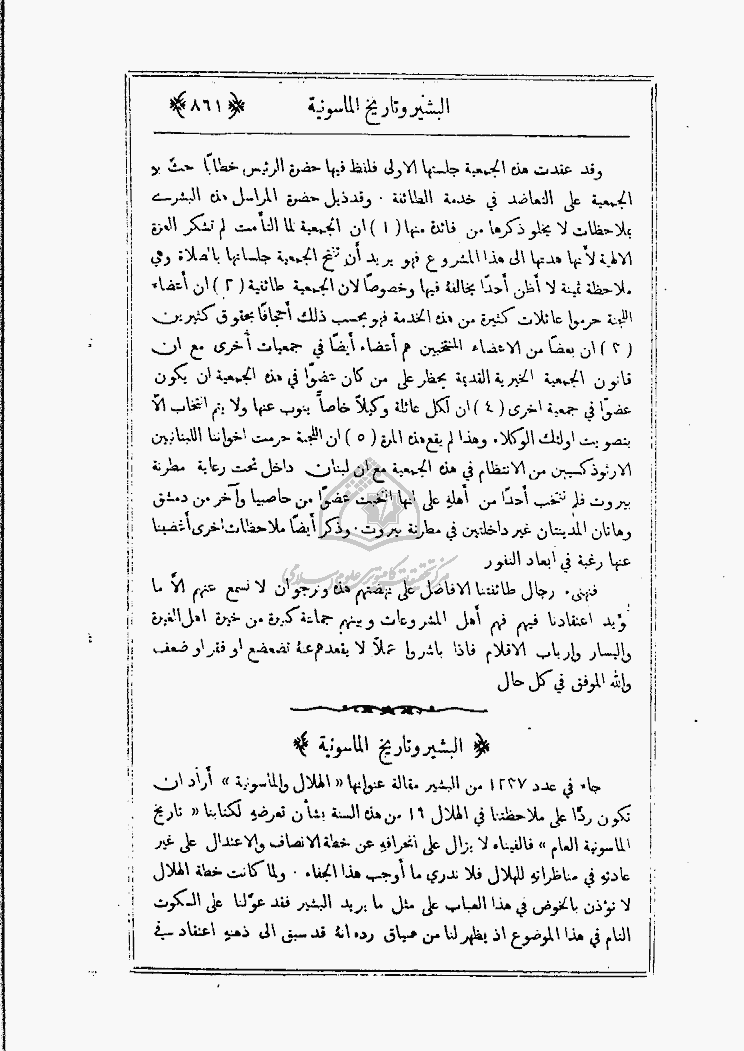 البشير وتاريخ الماسونية ﴿ ٨٦١ ﴾
وقد عقدت هذه الجمعية جلستها الاولى فلفظ فيها حضرة الرئيس خطابًا حثّ به
الجمعية على التعاضد في خدمة الطائفة ٠ وقد ذيل حضرة المراسل هذه البشرى
بملاحظات لا يخلو ذكرها من فائدة منها (١) ان الجمعية لما التأمت لم تشكر العزة
الالهية لأنها هدتها الى هذا المشروع فهو يريد أن تفتح الجمعية جلساتها بالصلاة وهي
ملاحظة ثمينة لا أظن أحدًا يخالفهُ فيها وخصوصًا لان الجمعية طائفية (٢) ان أعضاء
اللجنة حرموا عائلات كثيرة من هذه الخدمة فهو يحسب ذلك أجحافًا بحقوق كثيرين
(٣) ان بعضًا من الاعضاء المنتخبين هم أعضاء أيضًا في جمعيات أخرى مع ان
قانون الجمعية الخيرية القديمة يحظر على من كان عضوًا في هذه الجمعية ان يكون
عضوًا في جمعية اخرى (٤) ان لكل عائلة وكيلاً خاصاً ينوب عنها ولا يتم انتخاب الاّ
بتصويت اولئك الوكلاء وهذا لم يقع هذه المرة (٥) ان اللجنة حرمت اخواننا اللبنانيين
الارثوذكسيين من الانتظام في هذه الجمعية مع ان لبنان داخل تحت رعاية مطرنة
بيروت فلم تنتخب أحدًا من أهلهِ على انها انتخبت عضوًا من حاصبيا وآخر من دمشق
وهاتان المدينتان غير داخلتين في مطرنة بيروت ٠ وذكر أيضًا ملاحظات اخرى أغضينا
عنها رغبة في أبعاد النفور
فنهنىء رجال طائفتنا الافاضل على نهضتهم هذه ونرجو ان لا نسمع عنهم الاّ ما
يؤيد اعتقادنا فيهم فهم أهل المشروعات وبينهم جماعة كبيرة من خيرة اهل الغيرة
واليسار وارباب الاقلام فاذا باشروا عملاً لا يقعدهم عنهُ تضعضع او فقر او ضعف
والله الموفق في كل حال
﴿ البشير وتاريخ الماسونية ﴾
جاء في عدد ١٢٣٧ من البشير مقالة عنوانها « الهلال والماسونية » أراد ان
تكون ردًّا على ملاحظتنا في الهلال ١٦ من هذه السنة بشأن تعرضهِ لكتابنا « تاريخ
الماسونية العام » فالفيناه لا يزال على انحرافهِ عن خطة الانصاف والاعتدال على غير
عادتهِ في مناظراتهِ للهلال فلا ندري ما أوجب هذا الجفاء ٠ ولما كانت خطة الهلال
لا تؤذن بالخوض في هذا العباب على مثل ما يريد البشير فقد عوّلنا على السكوت
التام في هذا الموضوع اذ يظهر لنا من سياق رده انهُ قد سبق الى ذهنهِ اعتقاد في
مركز تحقيقات كامپيوتري علوم اسلامي